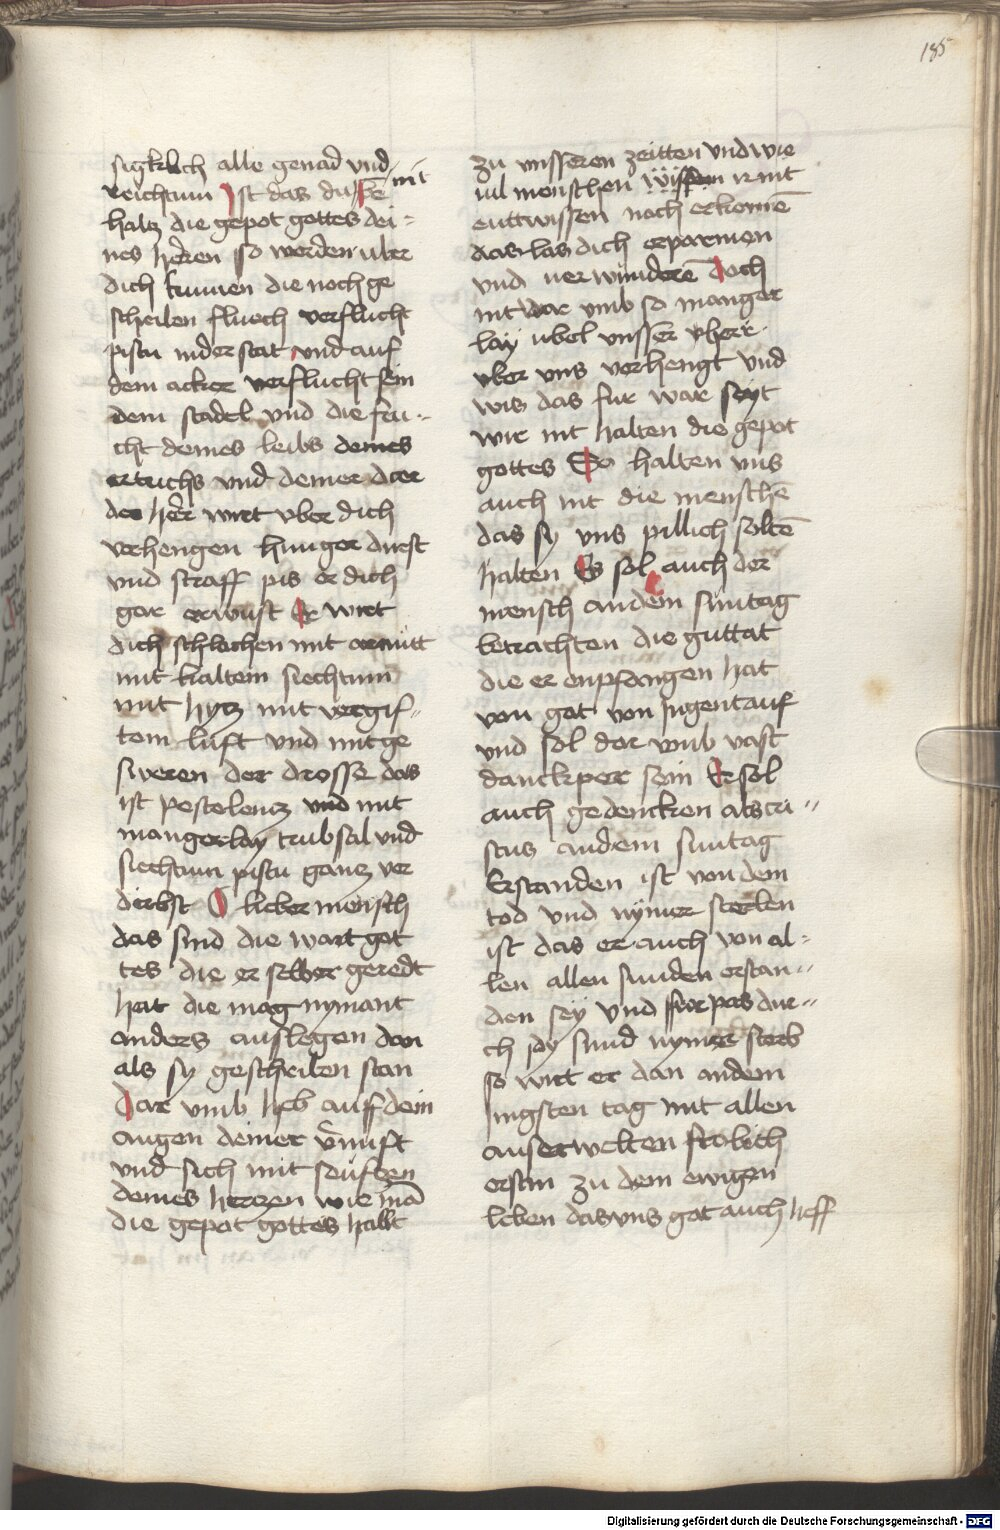 185
sigklich alle genad vnd
reichtum Ist das du sie nit
haltz die gepot gottes dei-
nes heren so werden uber
dich kumen die noch ge
schriben fluech verflucht
pistu in der stat vnd auf
dem acker verflucht sein
dem stadel vnd die fru-
cht deines leibs deines
ertrichs vnd deiner
der her wirt vber dich
verhengen hunger durst
vnd straff pis er dich
gar erwust Er wirt
dich schlachen mit armutt
mit kaltem siechtum
mit hytz mit vergif-
tem luft und mit ge
sweren der drosse das
ist Pestelentz vnd mit
mangerlay trubsal vnd
siechtum pistu gantz ver
dirbst O lieber mensch
das sind die wart got
tes die er selber geredt
hat die mag nymant
anders auslegen dan
als sy geschriben stan
Dar vmb heb auff dein
augen deiner vernuft
vnd sich mit seuftzen
deines hertzen wie ma
die gepot gottes hallt
zu vnsseren zeitten vnd wie
uil menschen wissen ir nit
enttwissen noch erkomen
das las dich erparmen
vnd uerwunderen Doch
nit dar vmb so manger
lay ubel vnsser herr
vber vns verhengt vnd
wis das fur war seyt
wir nit halten die gepot
gottes So halten vns
auch nit die menschen
das sy vns pillich solten
halten Es sol auch der
mensch an dem suntag
betrachten die guttat
die er enpfangen hat
von got von Jugent auf
vnd sol dar vmb vast
danckper sein Er sol
auch gedencken als cri-
stus an dem suntag
Erstanden ist von dem
tod vnd nymer sterben
ist das er auch von al-
len allen sunden erstan-
den sey Vnd fur pas dur-
ch sund nymer sterb
so wirt er dan an dem
Jngsten tag mit allen
auserwelten frolich
erstan zu dem ewigen
leben das vns got auch heff
Digitalisierung gefördert durch die Deutsche Forschungsgemeinschaft - DFG